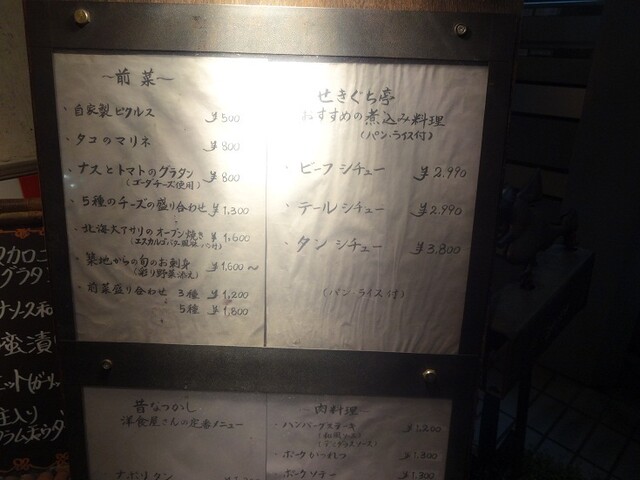 ～前菜～
・自家製ピクルス ¥500
・タコのマリネ ¥800
・ナスとトマトのグラタン ¥800
（ゴーダチーズ使用）
・5種のチーズの盛り合わせ ¥1,300
・北海大アサリのオーブン焼き ¥1,600
・築地からの旬のお刺身 ¥1,600～
（彩り野菜添え）
・前菜盛り合わせ 3種 ¥1,200
5種 ¥1,800
せきぐち亭
おすすめの煮込み料理
（パン・ライス付）
・ビーフシチュー ¥2.990
・テールシチュー ¥2.990
・タンシチュー ¥3,800
（パン ライス付）
昔なつかし
洋食屋さんの定番メニュー
ナポリタン
～肉料理～
・ハンバーグステーキ ¥1,200
（和風ソース）
（デミグラスソース）
・ポークかつれつ ¥1,300
・ポークソテー ¥1,300
マカロニ
グラタ
ナソース和
蜜漬